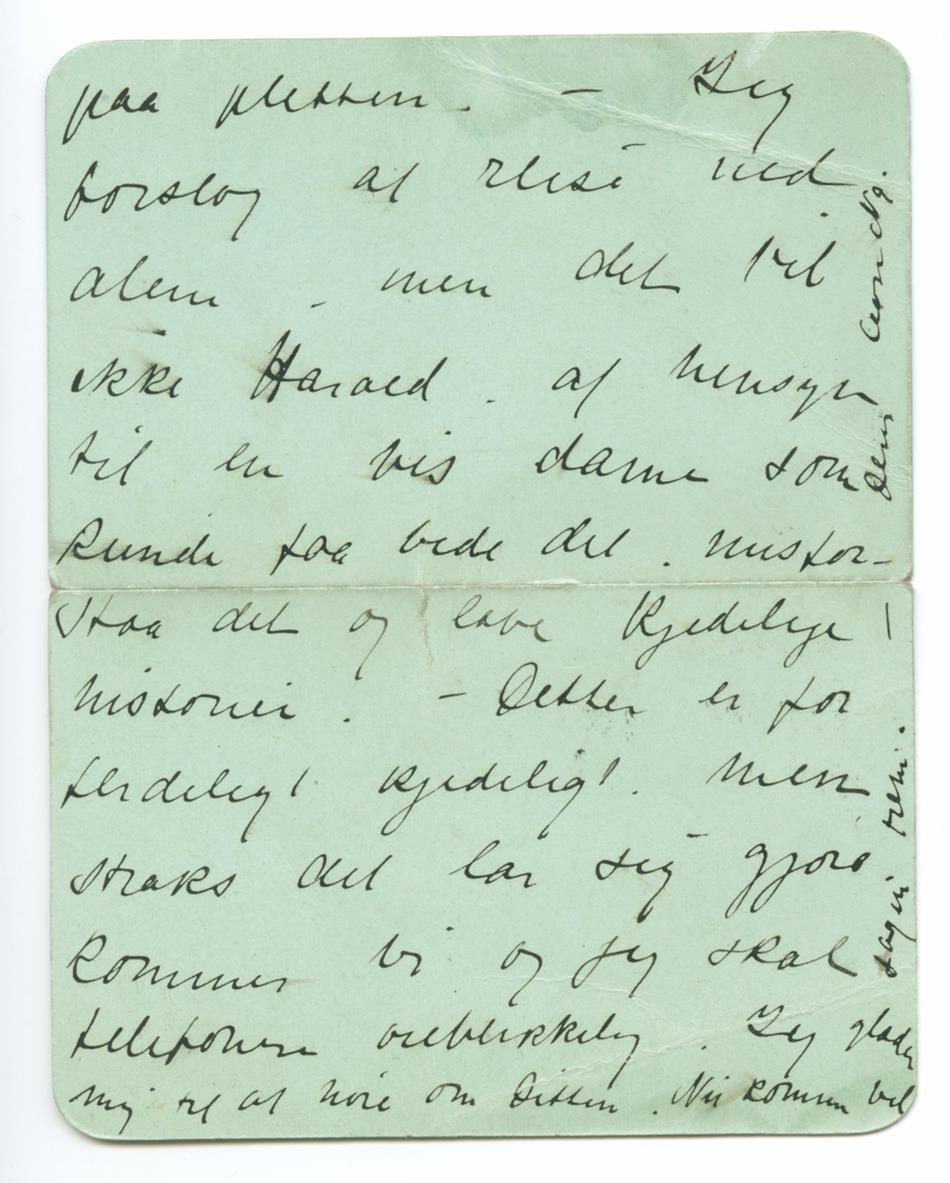 paa pletten. – Jeg
forslog at reise ned
alene, men det vil
ikke Harald. af hensyn
til en vis dame som
kunde faa bede det. misfor-
staa det og lave kjedelige
historier. – Dette er for
færdeligt kjedeligt. Men
straks det lar sig gjøre
kommer vi og jeg skal
telefonere øieblikkelig. Jeg glæder
mig til at høre om Sitten. Nu kommer vel
sagen rem.
Deres